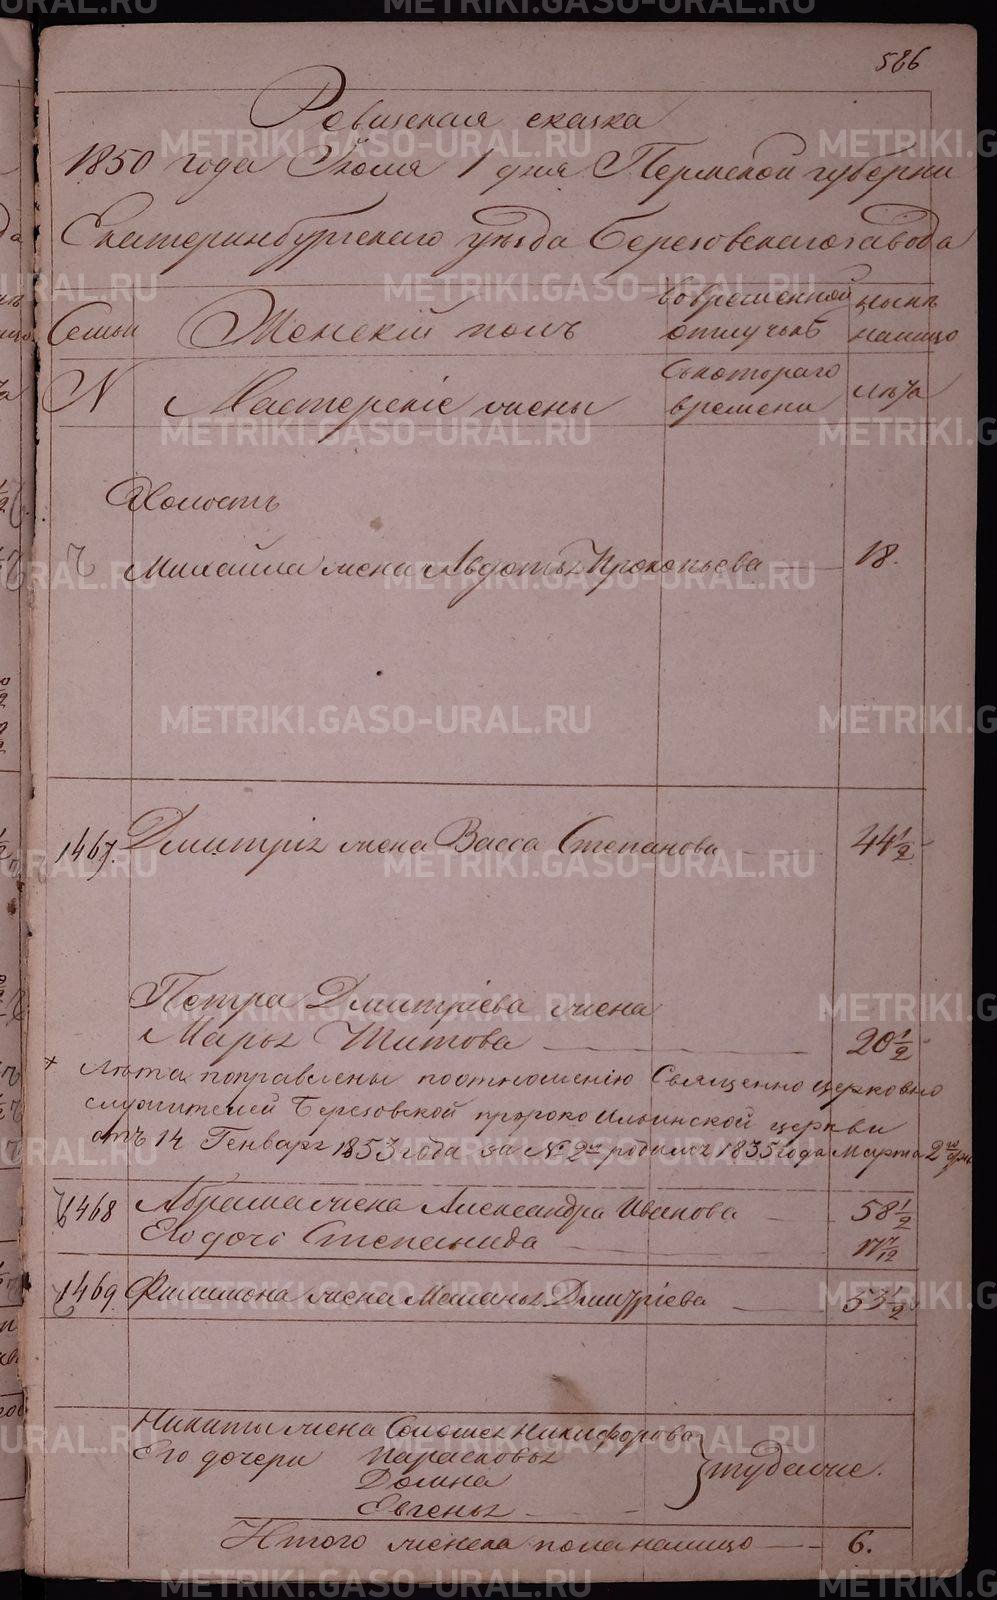 586
Ревизская сказка
1850 года Июля 1 дня Пермской губернии
Екатеринбургскаго уезда Березовскаго завода
Семьи
Женский полъ
Во временной отлучке
ныне налицо
N
Мастерские жены
Съ котораго времени
лета
Холостъ
Михайла жена Авдотья Прокопьева 18.
1467. Дмитрия жена Васса Степанова 44 1/2
Петра Дмитриева жена
Марья Титова 20 1/2
× Лета поправлены по отношению Священно церковно
служителей Березовской пророко Ильинской церкви
отъ 14 Генваря 1853 года за № 2м родилась 1835 года Марта 2го дня
1468 Абрама жена Александра Иванова 58 1/2
Его дочь Степанида 17 7/12
1469 Филимона жена Маланья Дмитриева 53 1/2
Никиты жена Соломея Никифорова
Его дочери Парасковья
Домна
Евгенья
туда же.
Итого женска пола налицо 6.
METRIKI.GASO-URAL.RU